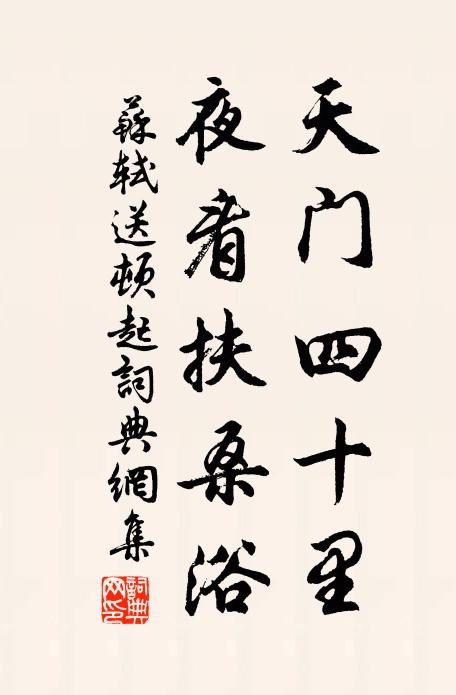 天门四十里
夜看扶桑浴
蘇軾送頓起詞典網集
詞典網印